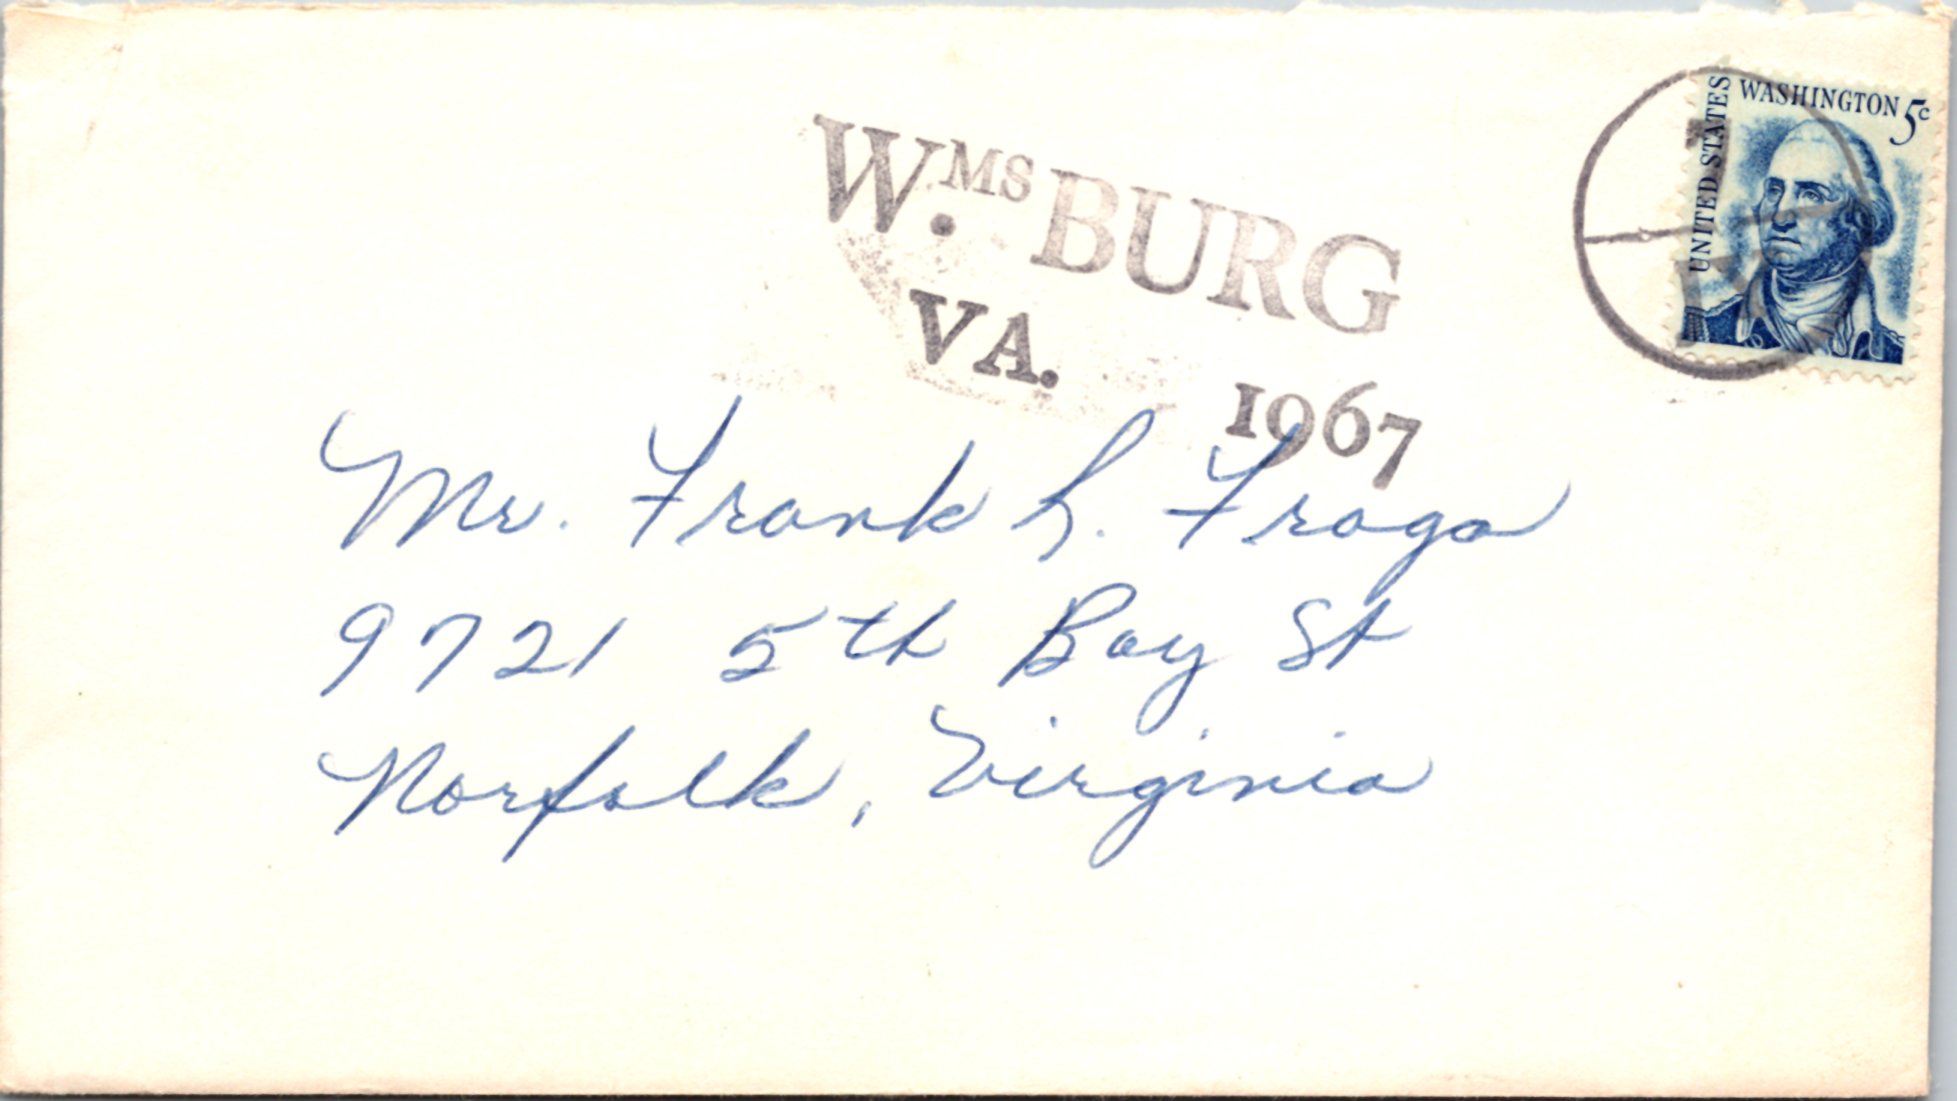 UNITED STATES
WASHINGTON 5c
Wms BURG
VA.
1967
Mr. Frank L. Fraga
9721 5th Bay St
Norfolk, Virginia